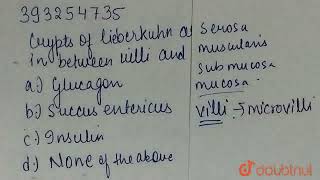 393254735
Crypts of lieberkuhn a
in between villi and
a.) Glucagon
b.) Succus entericus
c.) Insulin
d.) None of the above
Serosa
muscularis
sub mucosa
mucosa.
villi microvilli
doubtnut